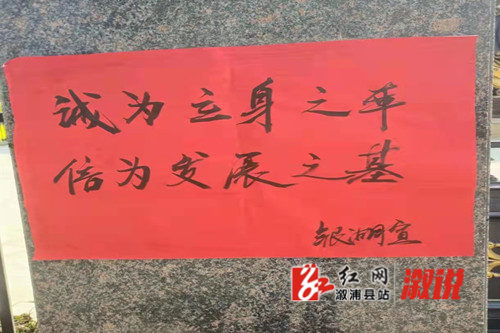 诚为立身之本
信为发展之基
银湖宣
红网
溆浦县站
溆说